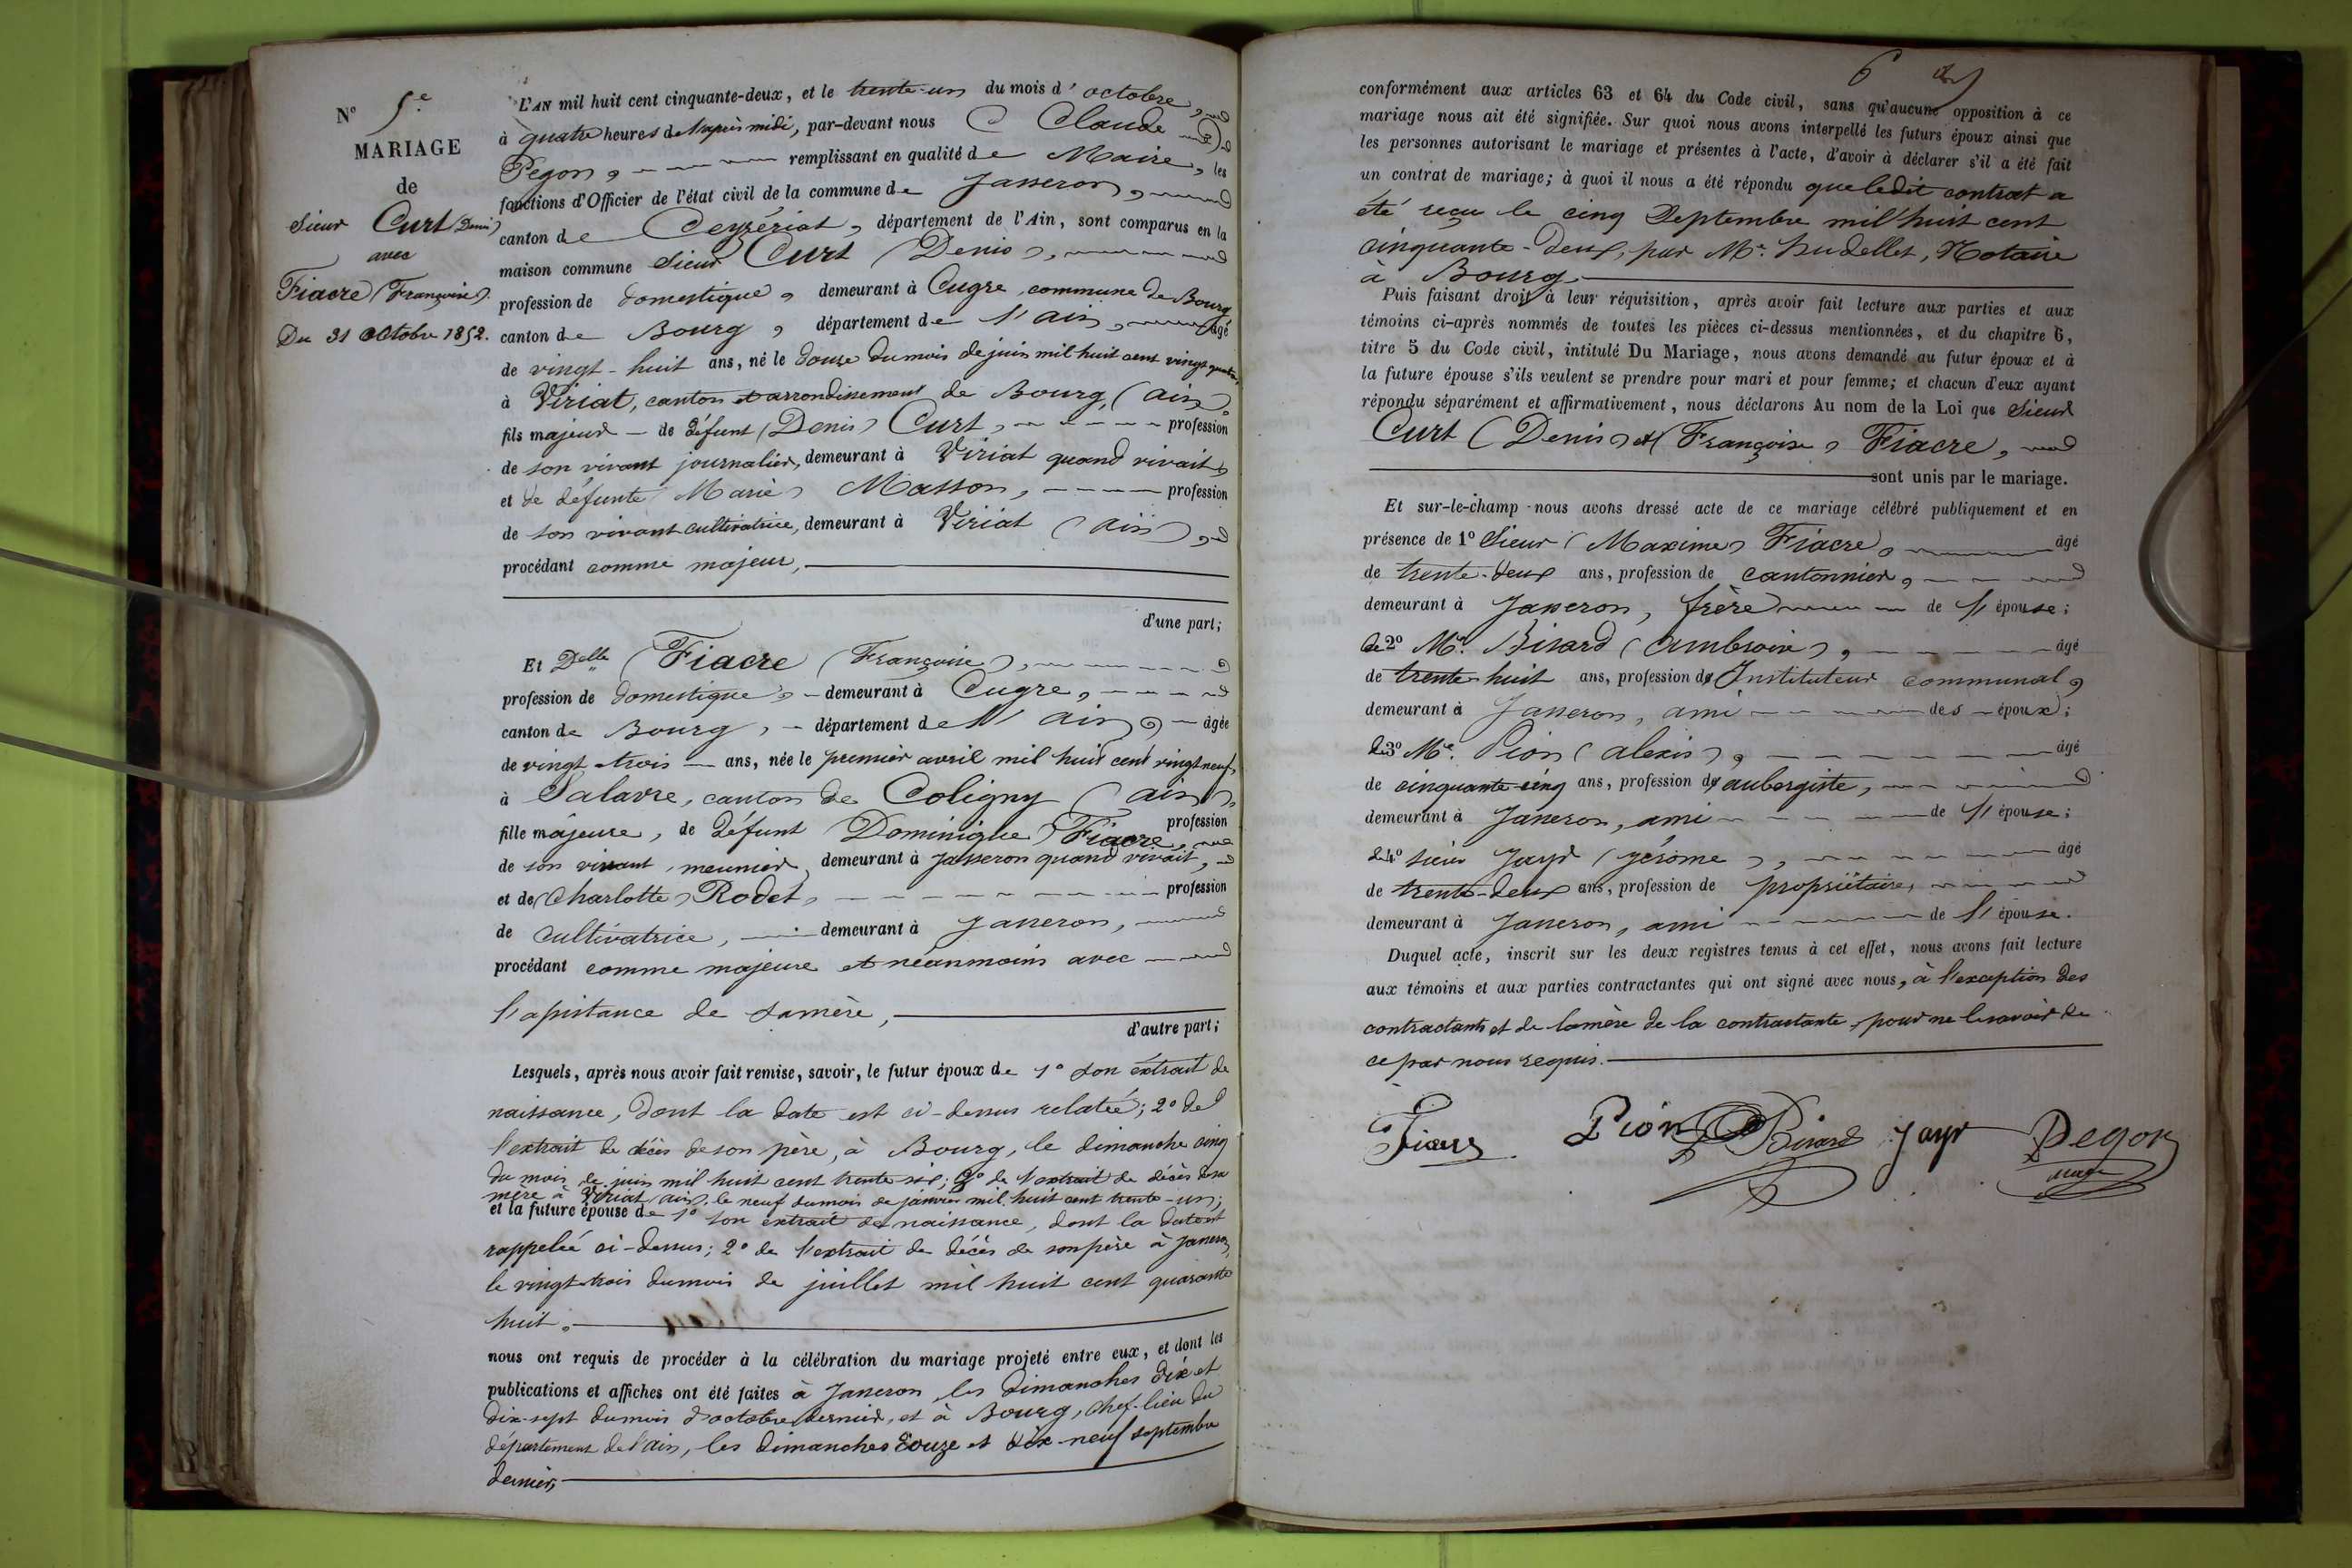 N° 5e
MARIAGE
de
Sieur Curt (Denis)
avec
Fiacre (Françoise).
Du 31 Octobre 1852.
L'AN mil huit cent cinquante-deux, et le trente-un du mois d'octobre,
à quatre heures de l'après midi, par-devant nous Claude
Pegon, remplissant en qualité de Maire, les
fonctions d'Officier de l'état civil de la commune de Jasseron,
canton de Ceyzériat, département de l'Ain, sont comparus en la
maison commune Sieur Curt (Denis),
profession de domestique, demeurant à Cugre, commune de Bourg
canton de Bourg, département de l'ain, âgé
de vingt-huit ans, né le douze du mois de juin mil huit cent vingt quatre,
à Viriat, canton et arrondissement de Bourg, (ain),
fils majeur de défunt (Denis) Curt, profession
de son vivant journalier, demeurant à Viriat quand vivait,
et de défunte (Marie) Masson, profession
de son vivant cultivatrice, demeurant à Viriat (ain),
procédant comme majeur,
d'une part;
Et Delle (Fiacre (Françoise),
profession de domestique, demeurant à Cugre,
canton de Bourg, département de l'ain, âgée
de vingt-trois ans, née le premier avril mil huit cent vingt neuf,
à Salavre, canton de Coligny (ain),
fille majeure, de défunt (Dominique) Fiacre, profession
de son vivant, meunier, demeurant à Jasseron quand vivait,
et de (Charlotte) Rodet, profession
de cultivatrice, demeurant à Jasseron,
procédant comme majeure et néanmoins avec
l'assistance de sa mère,
d'autre part;
Lesquels, après nous avoir fait remise, savoir, le futur époux de 1° son extrait de
naissance, dont la date est ci-dessus relatée; 2° de
l'extrait de décès de son père, à Bourg, le dimanche cinq
du mois de juin mil huit cent trente six; 3° de l'extrait de décès de sa
mère à Viriat (ain), le neuf du mois de janvier mil huit cent trente-un;
et la future épouse de 1° son extrait de naissance, dont la date est
rappelée ci-dessus; 2° de l'extrait de décès de son père à Jasseron,
le vingt-trois du mois de juillet mil huit cent quarante
huit.
nous ont requis de procéder à la célébration du mariage projeté entre eux, et dont les
publications et affiches ont été faites à Jasseron, les dimanches dix et
dix-sept du mois d'octobre dernier, et à Bourg, chef-lieu du
département de l'ain, les dimanches douze et dix-neuf septembre
dernier,
6
conformément aux articles 63 et 64 du Code civil, sans qu'aucune opposition à ce
mariage nous ait été signifiée. Sur quoi nous avons interpellé les futurs époux ainsi que
les personnes autorisant le mariage et présentes à l'acte, d'avoir à déclarer s'il a été fait
un contrat de mariage; à quoi il nous a été répondu que ledit contrat a
été reçu le cinq Septembre mil huit cent
cinquante-deux, par Me. Hudellet, Notaire
à Bourg.
Puis faisant droit à leur réquisition, après avoir fait lecture aux parties et aux
témoins ci-après nommés de toutes les pièces ci-dessus mentionnées, et du chapitre 6,
titre 5 du Code civil, intitulé Du Mariage, nous avons demandé au futur époux et à
la future épouse s'ils veulent se prendre pour mari et pour femme; et chacun d'eux ayant
répondu séparément et affirmativement, nous déclarons Au nom de la Loi que Sieur
Curt (Denis) et (Françoise) Fiacre,
sont unis par le mariage.
Et sur-le-champ nous avons dressé acte de ce mariage célébré publiquement et en
présence de 1° Sieur (Maxime) Fiacre, âgé
de trente-deux ans, profession de cantonnier,
demeurant à Jasseron, frère de l'épouse;
de 2° Mr. Birard (Ambroise), âgé
de trente-huit ans, profession d'Instituteur communal,
demeurant à Jasseron, ami des époux;
de 3° Mr. Pion (alexis), âgé
de cinquante-cinq ans, profession d'aubergiste,
demeurant à Jasseron, ami de l'épouse;
de 4° sieur Jayr (Jérôme), âgé
de trente-deux ans, profession de propriétaire,
demeurant à Jasseron, ami de l'épouse.
Duquel acte, inscrit sur les deux registres tenus à cet effet, nous avons fait lecture
aux témoins et aux parties contractantes qui ont signé avec nous, à l'exception des
contractants et de la mère de la contractante, pour ne le savoir de
ce par nous requis.
Fiacre Pion Birard Jayr Pegon
maire